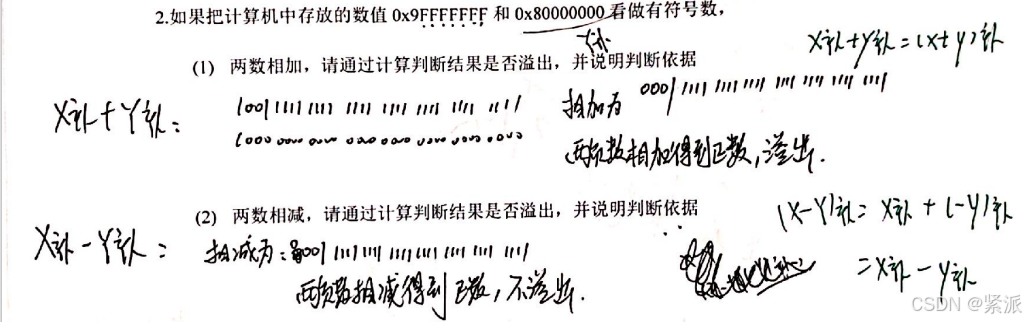 2.如果把计算机中存放的数值 0x9FFFFFFF 和 0x80000000 看做有符号数，
Y补
X补+Y补=(X+Y)补
(1) 两数相加，请通过计算判断结果是否溢出，并说明判断依据
X补+Y补=
1001 1111 1111 1111 1111 1111 1111 1111
1000 0000 0000 0000 0000 0000 0000 0000
相加为 0001 1111 1111 1111 1111 1111 1111 1111
两负数相加得到正数,溢出.
(2) 两数相减，请通过计算判断结果是否溢出，并说明判断依据
X补-Y补=
相减为: 0001 1111 1111 1111 1111 1111 1111 1111
两负数相减得到正数,不溢出.
(X-Y)补=X补+(-Y)补
=X补-Y补
CSDN @紧派